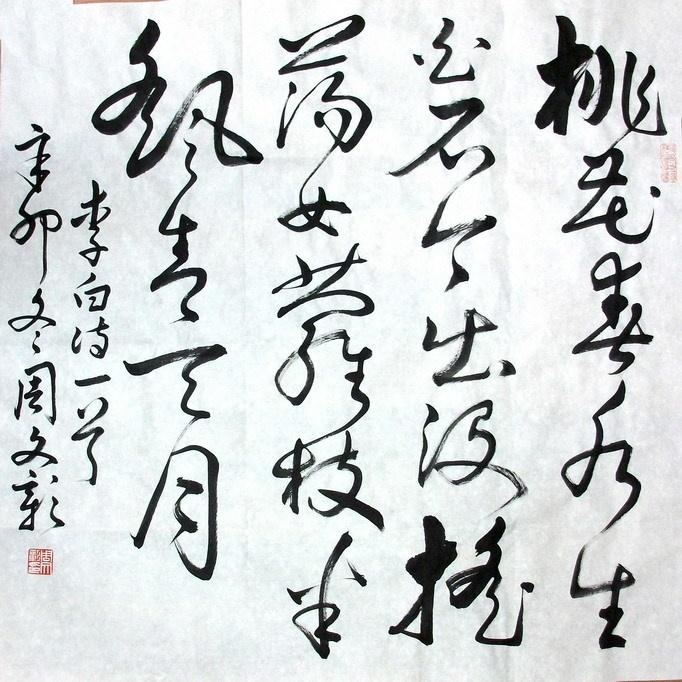 桃花春水生
白石今出没搖
蕩女蘿枝半
飖青天月
李白诗一首
辛卯冬周文彰